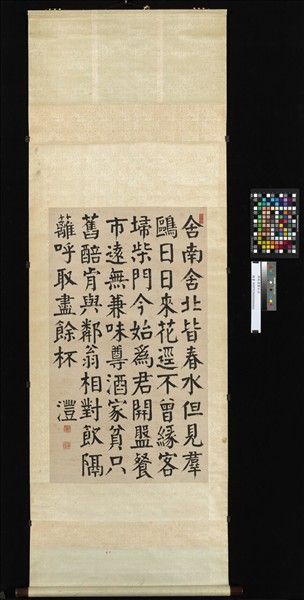 舍南舍北皆春水但見羣
鷗日日來花逕不曾緣客
埽柴門今始爲君開盤餐
市遠無兼味尊酒家貧只
舊醅肯與鄰翁相對飲隔
籬呼取盡餘杯 澧